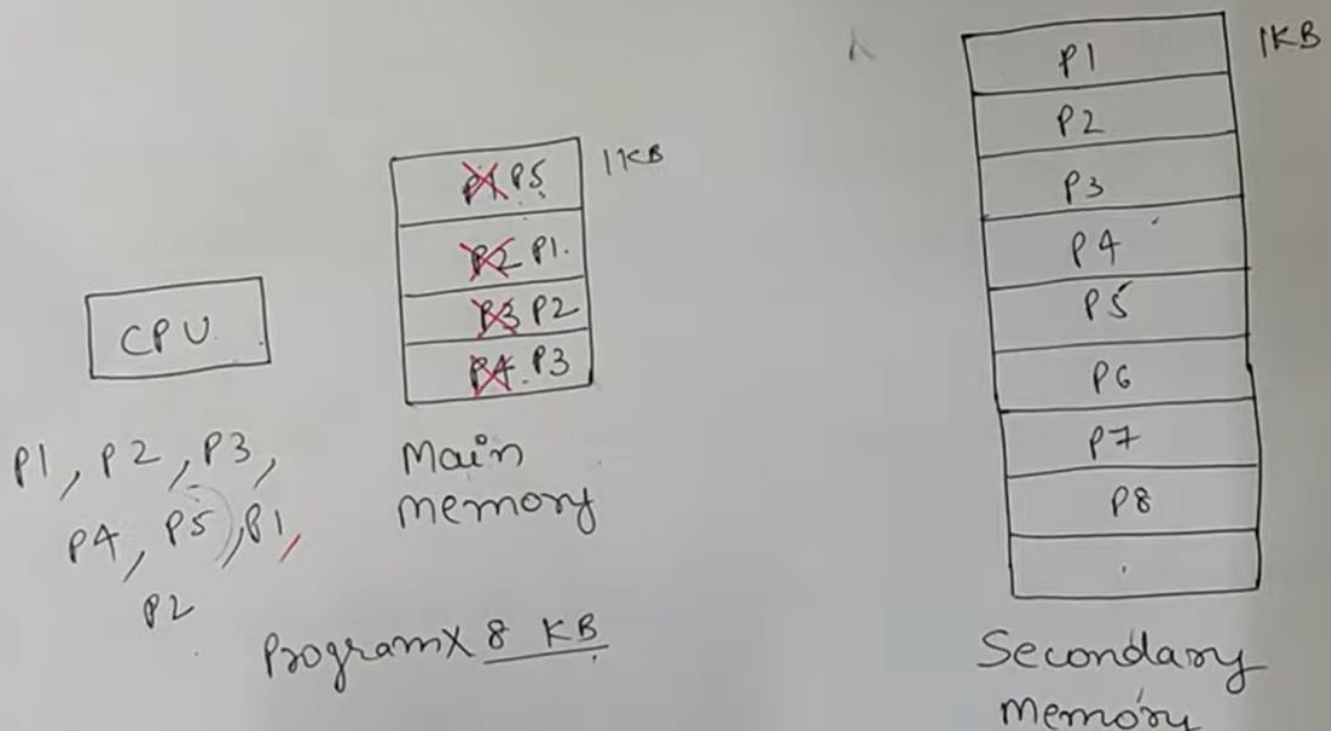 CPU
P1, P2, P3,
P4, P5, P1,
P2
1KB
P1 P5
P2 P1.
P3 P2
P4. P3
Main
memory
Program X 8 KB
1KB
P1
P2
P3
P4
P5
P6
P7
P8
Secondary
memory